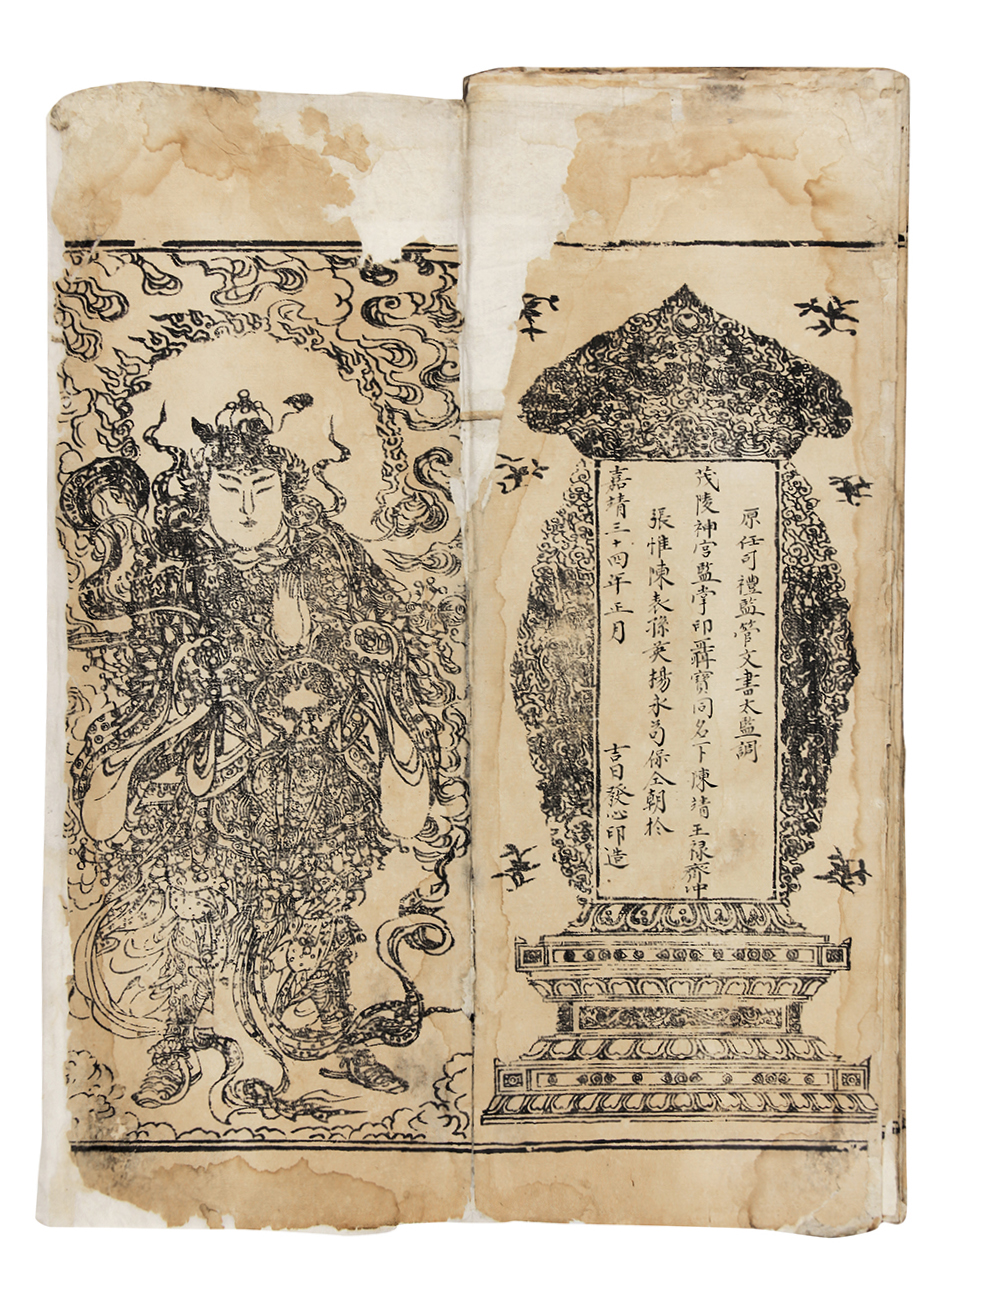 原任司禮監管文書太監調
茂陵神宮監掌印聶寶同名下陳靖王祿齊冲
張惟陳表孫英楊永苟保仝朝於
嘉靖三十四年正月 吉日發心印造